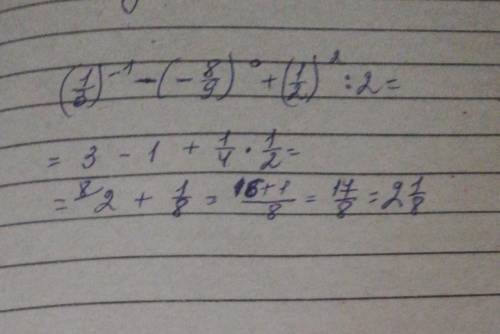 (1/3)⁻¹ − (−8/9)⁰ + (1/2)² : 2 =
= 3 − 1 + 1/4 · 1/2 =
= ⁸2 + 1/8 = 16+1/8 = 17/8 = 2 1/8